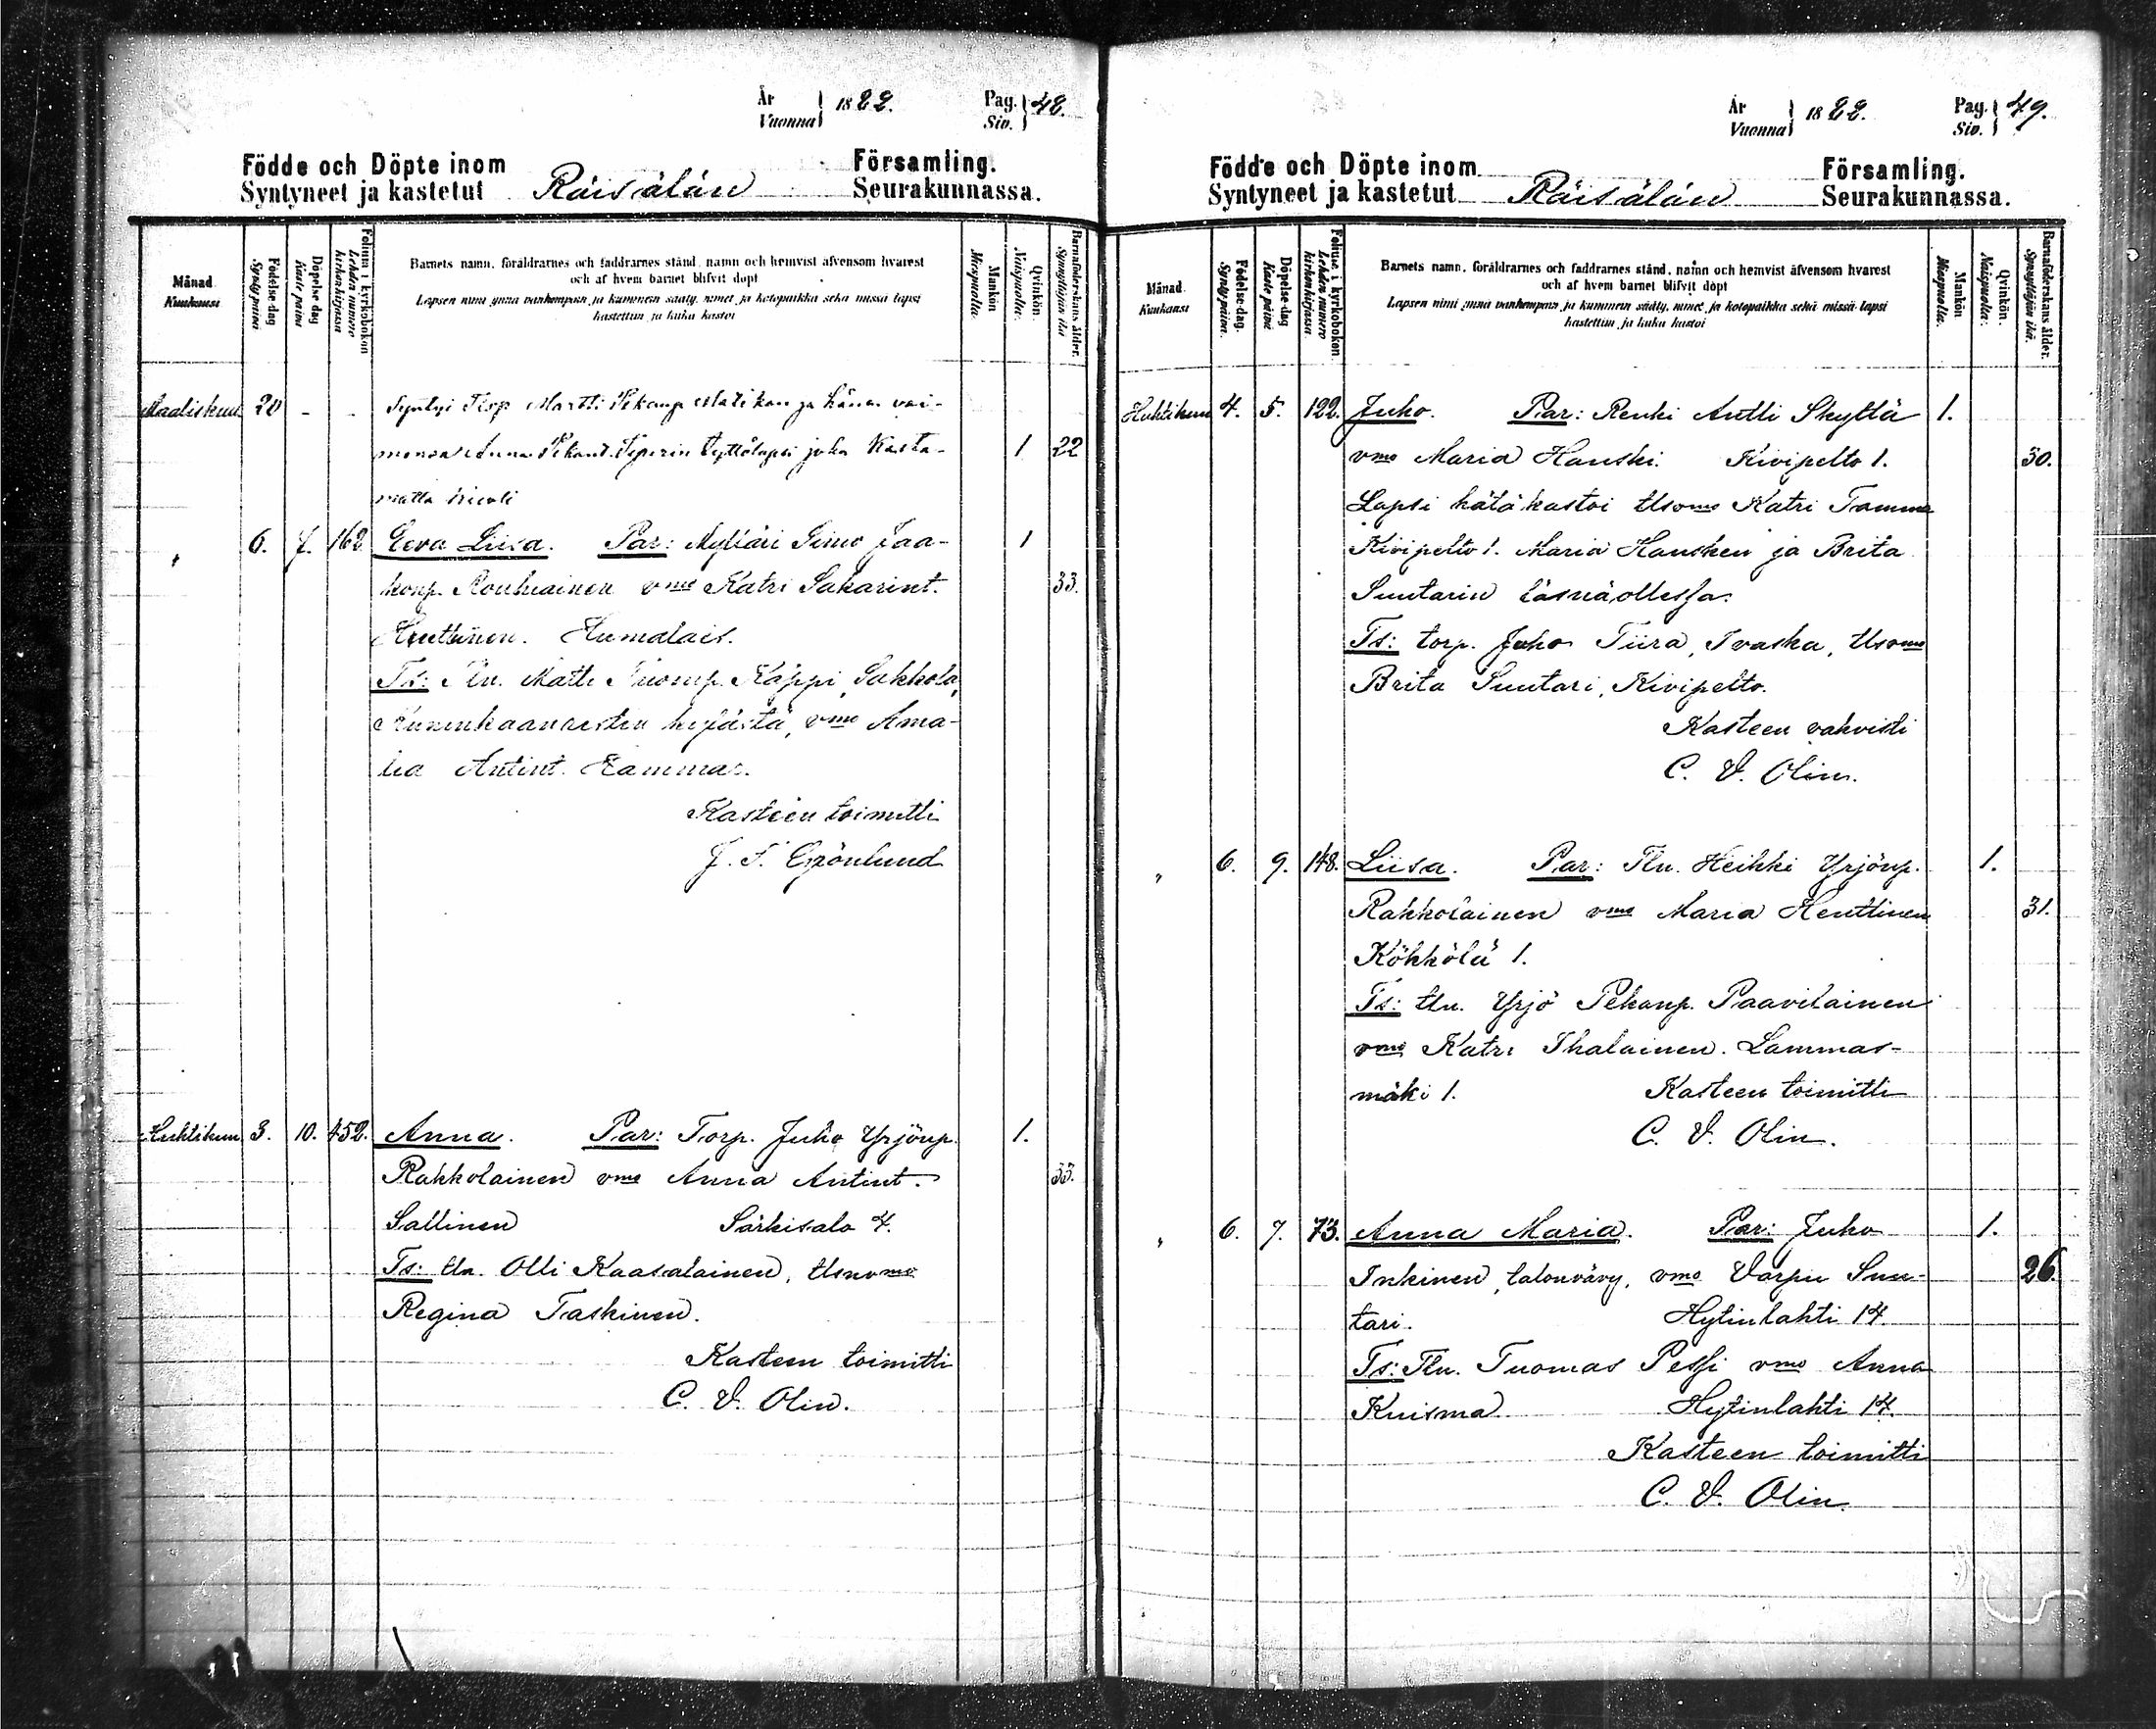 År
Vuonna 1882.
Pag.
Siv. 48.
Födde och Döpte inom Församling.
Syntyneet ja kastetut Räisälän Seurakunnassa.
Månad
Kuukausi
Födelse-dag
Syntypäivä
Döpelse dag
Kaste päivä
Folium i kyrkoboken
Lehden numero
kirkonkirjassa
Barnets namn, föräldrarnes och faddrarnes stånd, namn och hemvist äfvensom hvarest
och af hvem barnet blifvit döpt
Lapsen nimi ynnä vanhempain ja kummein sääty, nimet ja kotopaikka sekä missä lapsi
kastettiin ja kuka kastoi
Mankön
Miespuolia.
Qvinkön.
Naispuolia.
Barnaföderskans ålder.
Synnyttäjän ikä
Maaliskuu 20 - - Syntyi Martti Pekanp. ja hänen vai-
monsa Anna Tyttölapsi joka Kasta- 1 22
matta kuoli
6. 7. 162 Eeva Liisa. Par: Mylläri Simo Jaa- 1
konp. Rouhiainen vmo Katri Sakarint. 33.
Henttinen. Humalais.
Ts: Tln. Matti Tuomp. Käppi, Sakkola,
kylästä, vmo Ama-
lia Antint. Hammar.
Kasteen toimitti
J. F. Grönlund
Huhtikuu 3. 10. 452. Anna. Par: Torp. Juho Yrjönp. 1.
Rahkolainen vmo Anna Antint. 33.
Sallinen Särkisalo 4.
Ts: tln. Olli Kaasalainen, Itsnvmo
Regina Taskinen.
Kasteen toimitti
C. V. Olin.
År
Vuonna 1882.
Pag.
Siv. 49.
Födde och Döpte inom Församling.
Syntyneet ja kastetut Räisälän Seurakunnassa.
Månad.
Kuukausi
Födelse-dag.
Syntypäivä.
Döpelse-dag
Kaste päivä
Folium i kyrkoboken.
Lehden numero
kirkonkirjassa.
Barnets namn, föräldrarnes och faddrarnes stånd, namn och hemvist äfvensom hvarest
och af hvem barnet blifvit döpt
Lapsen nimi ynnä vanhempain ja kummein sääty, nimet ja kotopaikka sekä missä lapsi
kastettiin ja kuka kastoi
Mankön
Miespuolia.
Qvinkön.
Naispuolia.
Barnaföderskans ålder.
Synnyttäjän ikä.
Huhtikuu 4. 5. 122. Juho. Par: Renki Antti Skyttä 1.
vmo Maria Hanski. Kivipelto 1. 30.
Lapsi hätäkastoi Itsvmo Katri Tamme
Kivipelto 1. Maria Hansken ja Brita
Suutarin läsnäollessa.
Ts: torp. Juho Tiira, Ivaska, Itsvmo
Brita Suutari, Kivipelto.
Kasteen vahvisti
C. V. Olin.
" 6. 9. 148. Liisa. Par: Tln. Heikki Yrjönp. 1.
Rahkolainen vmo Maria Henttinen 31.
Kökkölä 1.
Ts: tln. Yrjö Pekanp. Paavilainen
vmo Katri Ihalainen. Lammas-
mäki 1. Kasteen toimitti
C. V. Olin.
" 6. 7. 73. Anna Maria. Par: Juho 1.
Inkinen, talonvävy, vmo Varpu Suu- 26.
tari. Hytinlahti 14.
Ts: Tln. Tuomas Pessi vmo Anna
Kuisma Hytinlahti 14.
Kasteen toimitti
C. V. Olin.